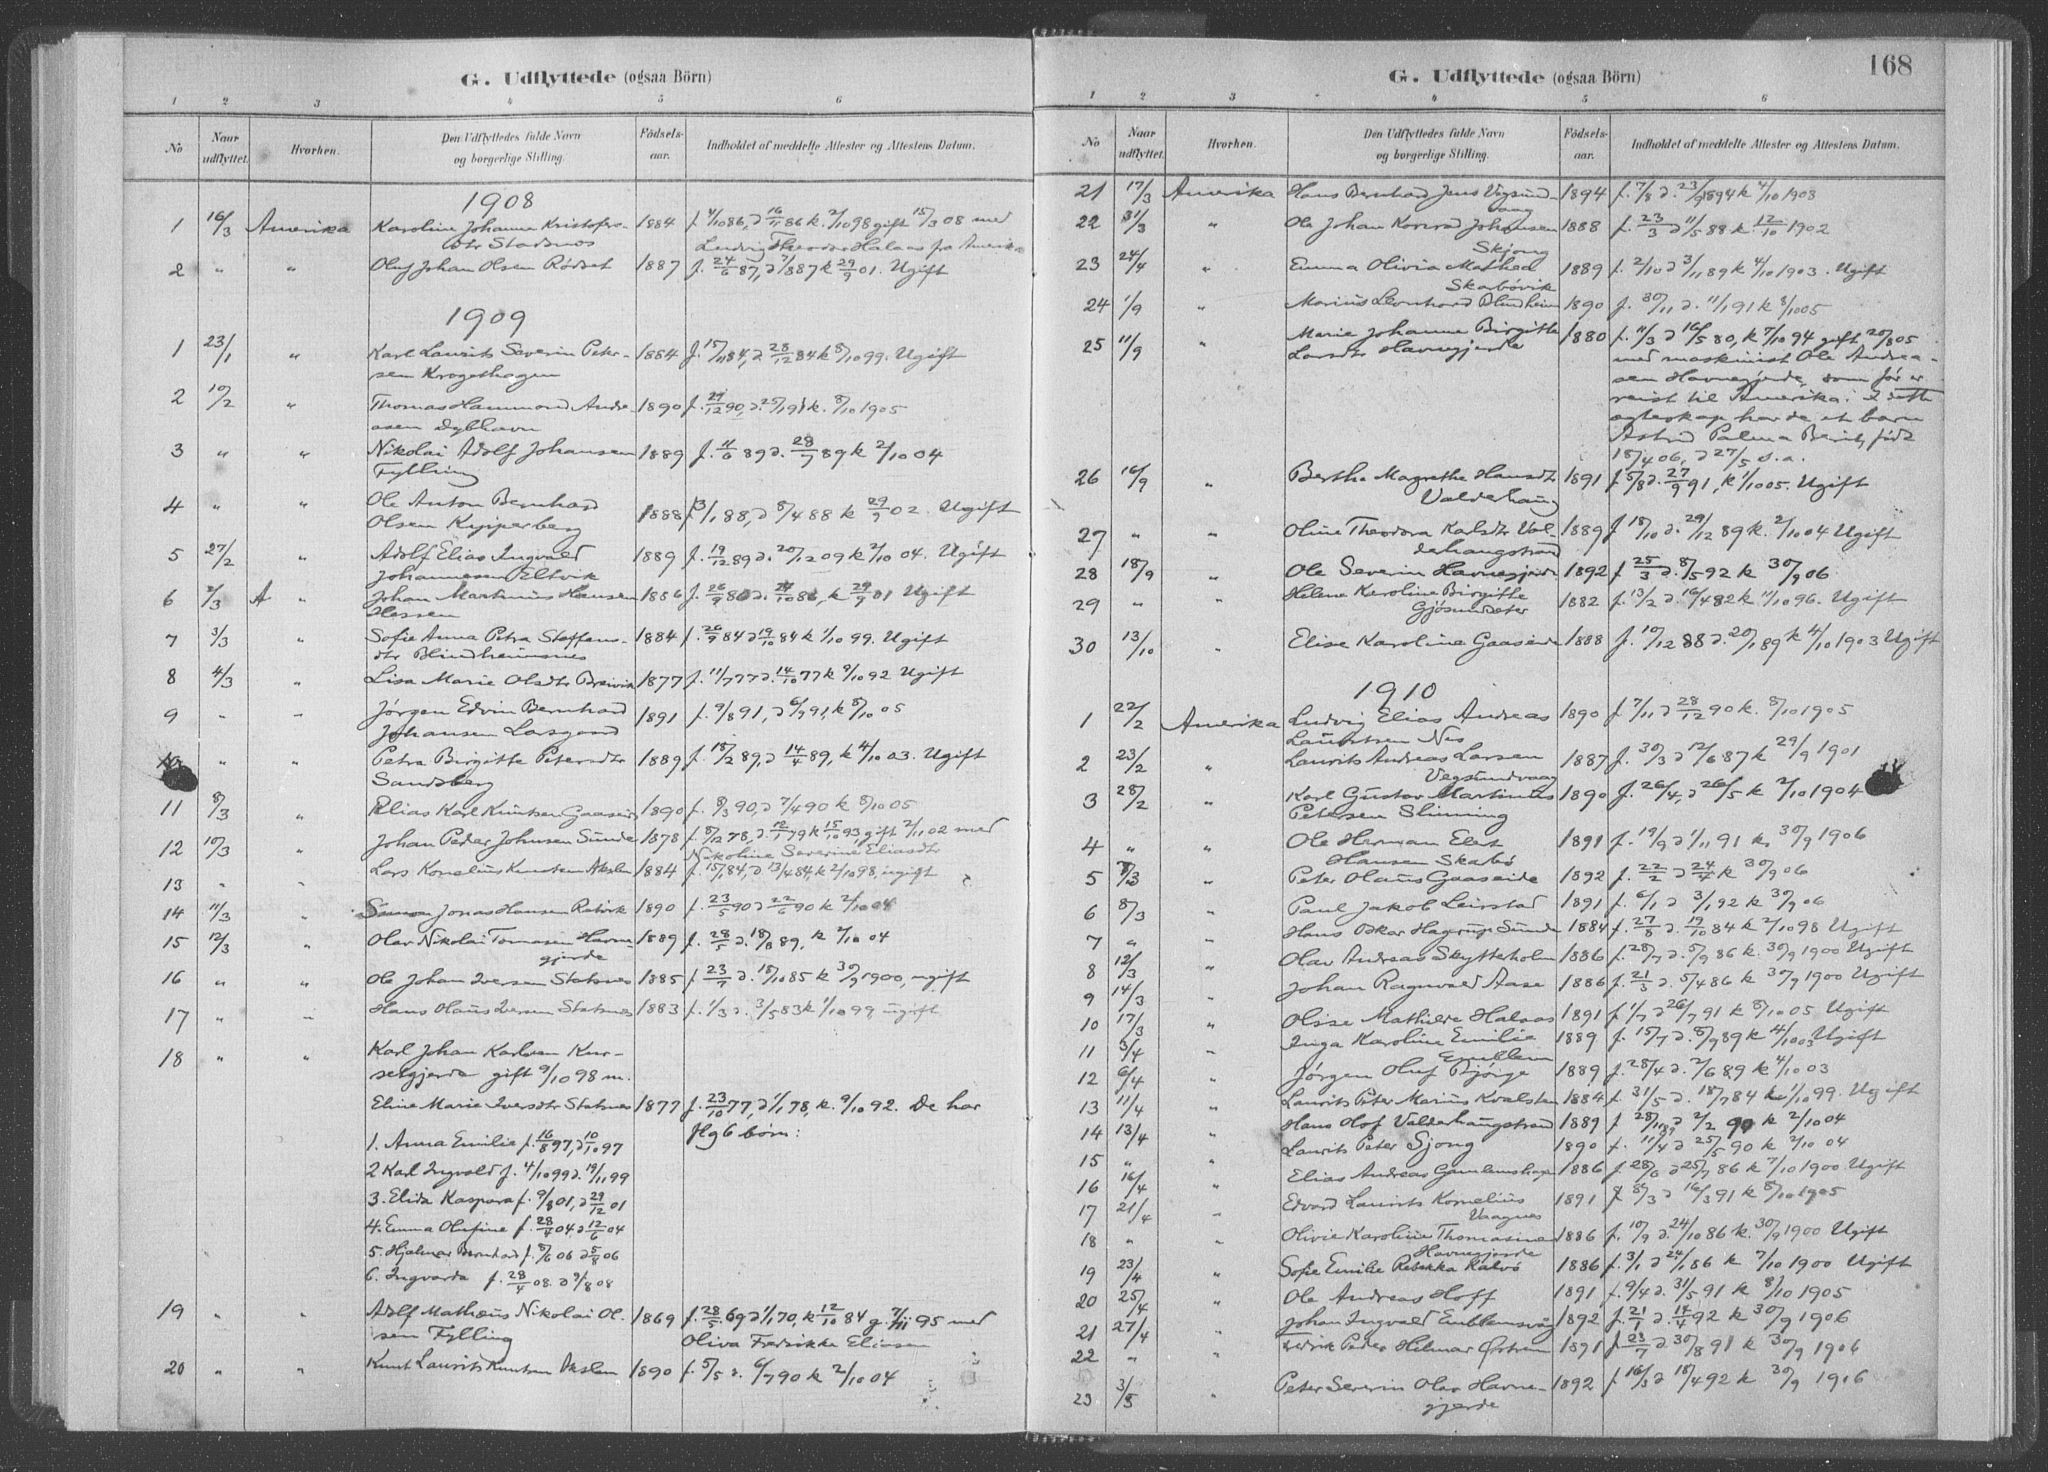 G. Udflyttede (ogsaa Börn)
1 2 3 4 5 6
No Naar udflyttet. Hvorhen. Den Udflyttedes fulde Navn og borgerlige Stilling. Födsels-aar. Indholdet af meddelte Attester og Attestens Datum.
1908
1 16/3 Amerika Karoline Johanne Kristofers- 1884 f. 4/10 86, d 16/11 86 k. 2/10 98 gift 15/3 08 med
dtr Stadsnes Ludvig Theodor Halaas fra Amerika
2 " " Oluf Johan Olsen Rødset 1887 f. 24/6 87, d 7/8 87 k 29/9 01. Ugift
1909
1 23/1 " Karl Laurits Severin Peter- 1884 f. 15/11 84, d 28/12 84 k 8/10 99. Ugift
sen Krogethagen
2 10/2 " Thomas Hammond Andre- 1890 f. 29/12 90, d. 25/1 91 k. 8/10 1905
asen Dybhavn
3 " " Nikolai Adolf Johansen 1889 f. 11/6 89 d. 28/7 89 k 2/10 04
Fylling
4 " " Ole Anton Bernhard
Olsen Kypperberg 1888 f. 13/1 88, d 8/4 88 k 29/9 02. Ugift
5 27/2 " Adolf Elias Ingvald 1889 f. 19/12 89 d. 20/12 09 k 2/10 04. Ugift
Johannesen Eltvik
6 2/3 A " Johan Martinus Hansen 1886 f. 26/9 86 d. 24/10 86, k 29/9 01 Ugift
Hessen
7 3/3 " Sofie Anna Petra Steffens- 1884 f. 26/9 84 d 19/10 84 k 1/10 99. Ugift
dtr Blindheimsnes
8 4/3 " Lisa Marie Olsdtr Breivik 1877 f. 11/7 77 d. 14/10 77 k 9/10 92 Ugift
9 " " Jørgen Edvin Bernhard 1891 f. 9/8 91, d 6/9 91, k 8/10 05
Johansen Larsgaard
" " Petra Birgitte Petersdtr 1889 f. 18/2 89, d 14/4 89, k 4/10 03. Ugift
Sandsberg
11 8/3 " Elias Karl Knutsen Gaaseid 1890 f. 8/3 90, d 7/4 90 k 8/10 05
12 10/3 " Johan Peder Johnsen Sunde 1878 f. 8/12 78, d. 12/1 79 k 15/10 93 gift 2/11 02 med
Nikoline Severine Eliasdtr
13 " " Lars Kornelius Knutsen Akslen 1884 f. 15/1 84, d 13/4 84, k 2/10 98, ugift
14 11/3 " Simon Jonas Hansen Ratvik 1890 f. 23/5 90 d 22/6 90 k 2/10 04
15 12/3 " Olav Nikolai Tomasen Havne- 1889 f. 28/5 d. 18/8 89, k 2/10 04
gjerde
16 " " Ole Johan Iversen Statsnes 1885 f. 23/9 d. 18/10 85 k 30/9 1900, ugift
17 " " Hans Claus Iversen Statsnes 1883 f. 1/3 d. 3/5 83 k 1/10 99 ugift
18 " " Karl Johan Karlsen Kur-
setgjerde gift 9/10 98 m.
Eline Marie Iversdtr Statsnes 1877 f. 23/10 77, d 1/1 78, k. 9/10 92. De har
flg 6 børn:
1. Anna Emilie f. 16/8 97, d 10/10 97
2 Karl Ingvald f. 4/10 99 d. 19/11 99
3. Elida Kaspara f. 9/8 01, d 29/12 01
4. Emma Olufine f. 28/4 04 d 12/6 04
5. Hjalmar Bernhard f. 5/6 06 d 5/8 06
6. Ingvarda f. 28/4 08. d 9/8 08
19 " " Adolf Mathæus Nikolai Ol- 1869 f. 28/5. 69 d 1/1 70, k 12/10 84 g. 7/11 95 med
sen Fylling Oliva Fredrikke Eliasen
20 " " Knut Laurits Knutsen Akslen 1890 f. 5/5 d. 6/7 90 k 2/10 04
168
G. Udflyttede (ogsaa Börn)
1 2 3 4 5 6
No Naar udflyttet. Hvorhen. Den Udflyttedes fulde Navn og borgerlige Stilling. Födsels-aar. Indholdet af meddelte Attester og Attestens Datum.
21 17/3 Amerika Hans Bernhard Jens Vegsund- 1894 f. 7/8 d. 23/9 1894 k 4/10 1908
vaag
22 31/3 " Ole Johan Konrad Johansen 1888 f. 23/3 d 11/5 88 k. 12/10 1902
Skjong
23 24/4 " Emma Olivia Mathea 1889 f. 2/10 d 3/11 89 k 4/10 1903. Ugift
Skarbøvik
24 1/9 " Marius Leonhard Blindheim 1890 f. 30/11 d. 11/1 91 k 8/10 05
25 11/9 " Marie Johanne Birgitte 1880 f. 11/3 d 16/5 80, k 7/10 94 gift 20/8 05
Larsdtr Havnegjerde med maskinist Ole Andrea-
sen Havnegjerde, som før er
reist til Amerika. I dette
egteskap har de et barn
Astrid Palma Berit, født
18/4 06, d 27/5 s. a.
26 16/9 " Berthe Magrethe Hansdtr 1891 f 5/8 d. 27/9 91, k 1/10 05. Ugift
Valderhaug
27 " " Oline Theodora Karlsdtr Val- 1889 f 18/10 d. 29/12 89 k. 2/10 04 Ugift
derhaugstrand
28 18/9 " Ole Severin Havnegjerde 1892 f 25/3 d. 8/5 92 k 30/9 06
29 " " Helene Karoline Birgitte 1882 f. 13/2 d. 16/4 82 k 11/10 96. Ugift
Gjøsundsæter
30 13/10 " Elise Karoline Gaaseide 1888 f. 10/12 88 d. 20/1 89 k 4/10 1903 Ugift
1910
1 22/2 Amerika Ludvig Elias Andreas 1890 f 7/11 d 28/12 90 k. 8/10 1905
Lauritsen Nes
2 23/2 " Laurits Andreas Larsen 1887 f. 30/3 d 12/6 87 k 29/9 1901
Vegsundvaag
3 28/2 " Karl Gustav Martinus 1890 f. 26/4, d 26/5 k 2/10 1904
Petersen Slinning
4 " " Ole Herman Elest 1891 f. 19/9 d 1/11 91 k. 30/9 1906
Hansen Skarbø
5 8/3 " Peter Olaus Gaaseide 1892 f. 22/2 d 24/4 k 30/9 06
6 8/3 " Paul Jakob Leirstad 1891 f. 6/1 d 3/1 92 k 30/9 06
7 " " Hans Oskar Hagrup Sunde 1884 f. 27/8 d. 19/10 84 k 2/10 98 Ugift
8 12/3 " Olav Andreas Skytteholm 1886 f. 28/7 d. 5/9 86 k. 30/9 1900 Ugift
9 14/3 " Johan Ragnvald Aase 1886 f. 21/3 d. 5/4 86 k 30/9 1900 Ugift
10 17/3 " Olise Mathilde Halaas 1891 f 1/7 d 26/7 91 k 8/10 05 Ugift
11 3/4 " Inga Karoline Emilie 1889 f. 15/7 d. 8/9 89 k 4/10 03 Ugift
Emblem
12 6/4 " Jørgen Oluf Bjørge 1889 f. 28/4 d. 2/6 89 k 4/10 03
13 11/4 " Laurits Peter Marius Kvalsten 1884 f. 31/5 d. 18/7 84 k 1/10 99. Ugift
14 13/4 " Hans Olof Valderhaugstrand 1889 f 28/11 d 2/2 90 k 2/10 04
15 " " Laurits Peter Sjong 1890 f. 11/4 d 25/5 90 k 2/10 04
16 16/4 " Elias Andreas Gamlemshage 1886 f 28/6 d 25/7 86 k 7/10 1900 Ugift
17 21/4 " Edvard Laurits Kornelius 1891 f 8/3 d 16/3 91 k 8/10 1905
Vaagnes
18 " " Olivie Karoline Thomasine 1886 f. 10/9 d. 24/10 86 k. 30/9 1900 Ugift
Havnegjerde
19 23/4 " Sofie Emilie Rebekka Kalvø 1886 f. 3/1 d 24/1 86 k 7/10 1900 Ugift
20 25/4 " Ole Andreas Hoff 1891 f. 9/4 d 31/5 91 k 8/10 1905
21 27/4 " Johan Ingvald Emblemsvåg 1892 f. 21/1 d. 14/4 92 k 30/9 1906
22 " " Fedrik Peder Hilmar Ørstein 1891 f 23/7 d. 30/8 91 k 30/9 1906
23 3/5 " Peter Severin Olav Havne- 1892 f 16/3 d 18/4 92 k 30/9 1906
gjerde